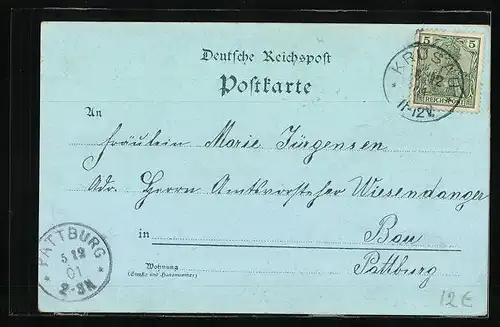 Deutsche Reichspost
Postkarte
5 5
REICHSPOST
* KRUSAU
12
11-12V.
An
Fräulein Marie Jürgensen
Adr. Herrn Amtsvorsteher Wiesendanger
in Bau
Pattburg
* PATTBURG *
5 12
01
2-3N
Wohnung
(Straße und Hausnummer)
12E